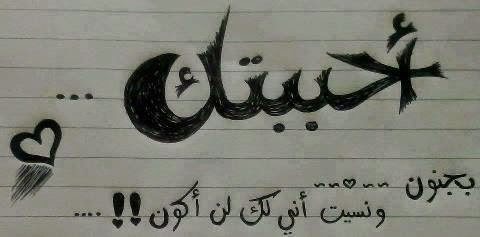 أحببتك ...
بجنون
ونسيت أني لك لن أكون !! ....